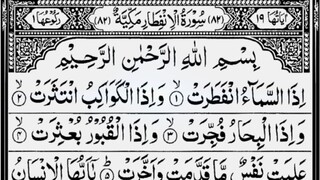 اٰيَاتُهَا ١٩ (٨٢) سُوْرَةُ الْاِنْفِطَارِ مَكِّيَّةٌ (٨٢) رُكُوْعُهَا ١
بِسْمِ اللّٰهِ الرَّحْمٰنِ الرَّحِيْمِ
اِذَا السَّمَآءُ انْفَطَرَتْ ۙ﴿١﴾ وَاِذَا الْكَوَاكِبُ انْتَثَرَتْ ۙ﴿٢﴾
وَاِذَا الْبِحَارُ فُجِّرَتْ ۙ﴿٣﴾ وَاِذَا الْقُبُوْرُ بُعْثِرَتْ ۙ﴿٤﴾
عَلِمَتْ نَفْسٌ مَّا قَدَّمَتْ وَاَخَّرَتْ ؕ﴿٥﴾ يٰۤاَيُّهَا الْاِنْسَانُ